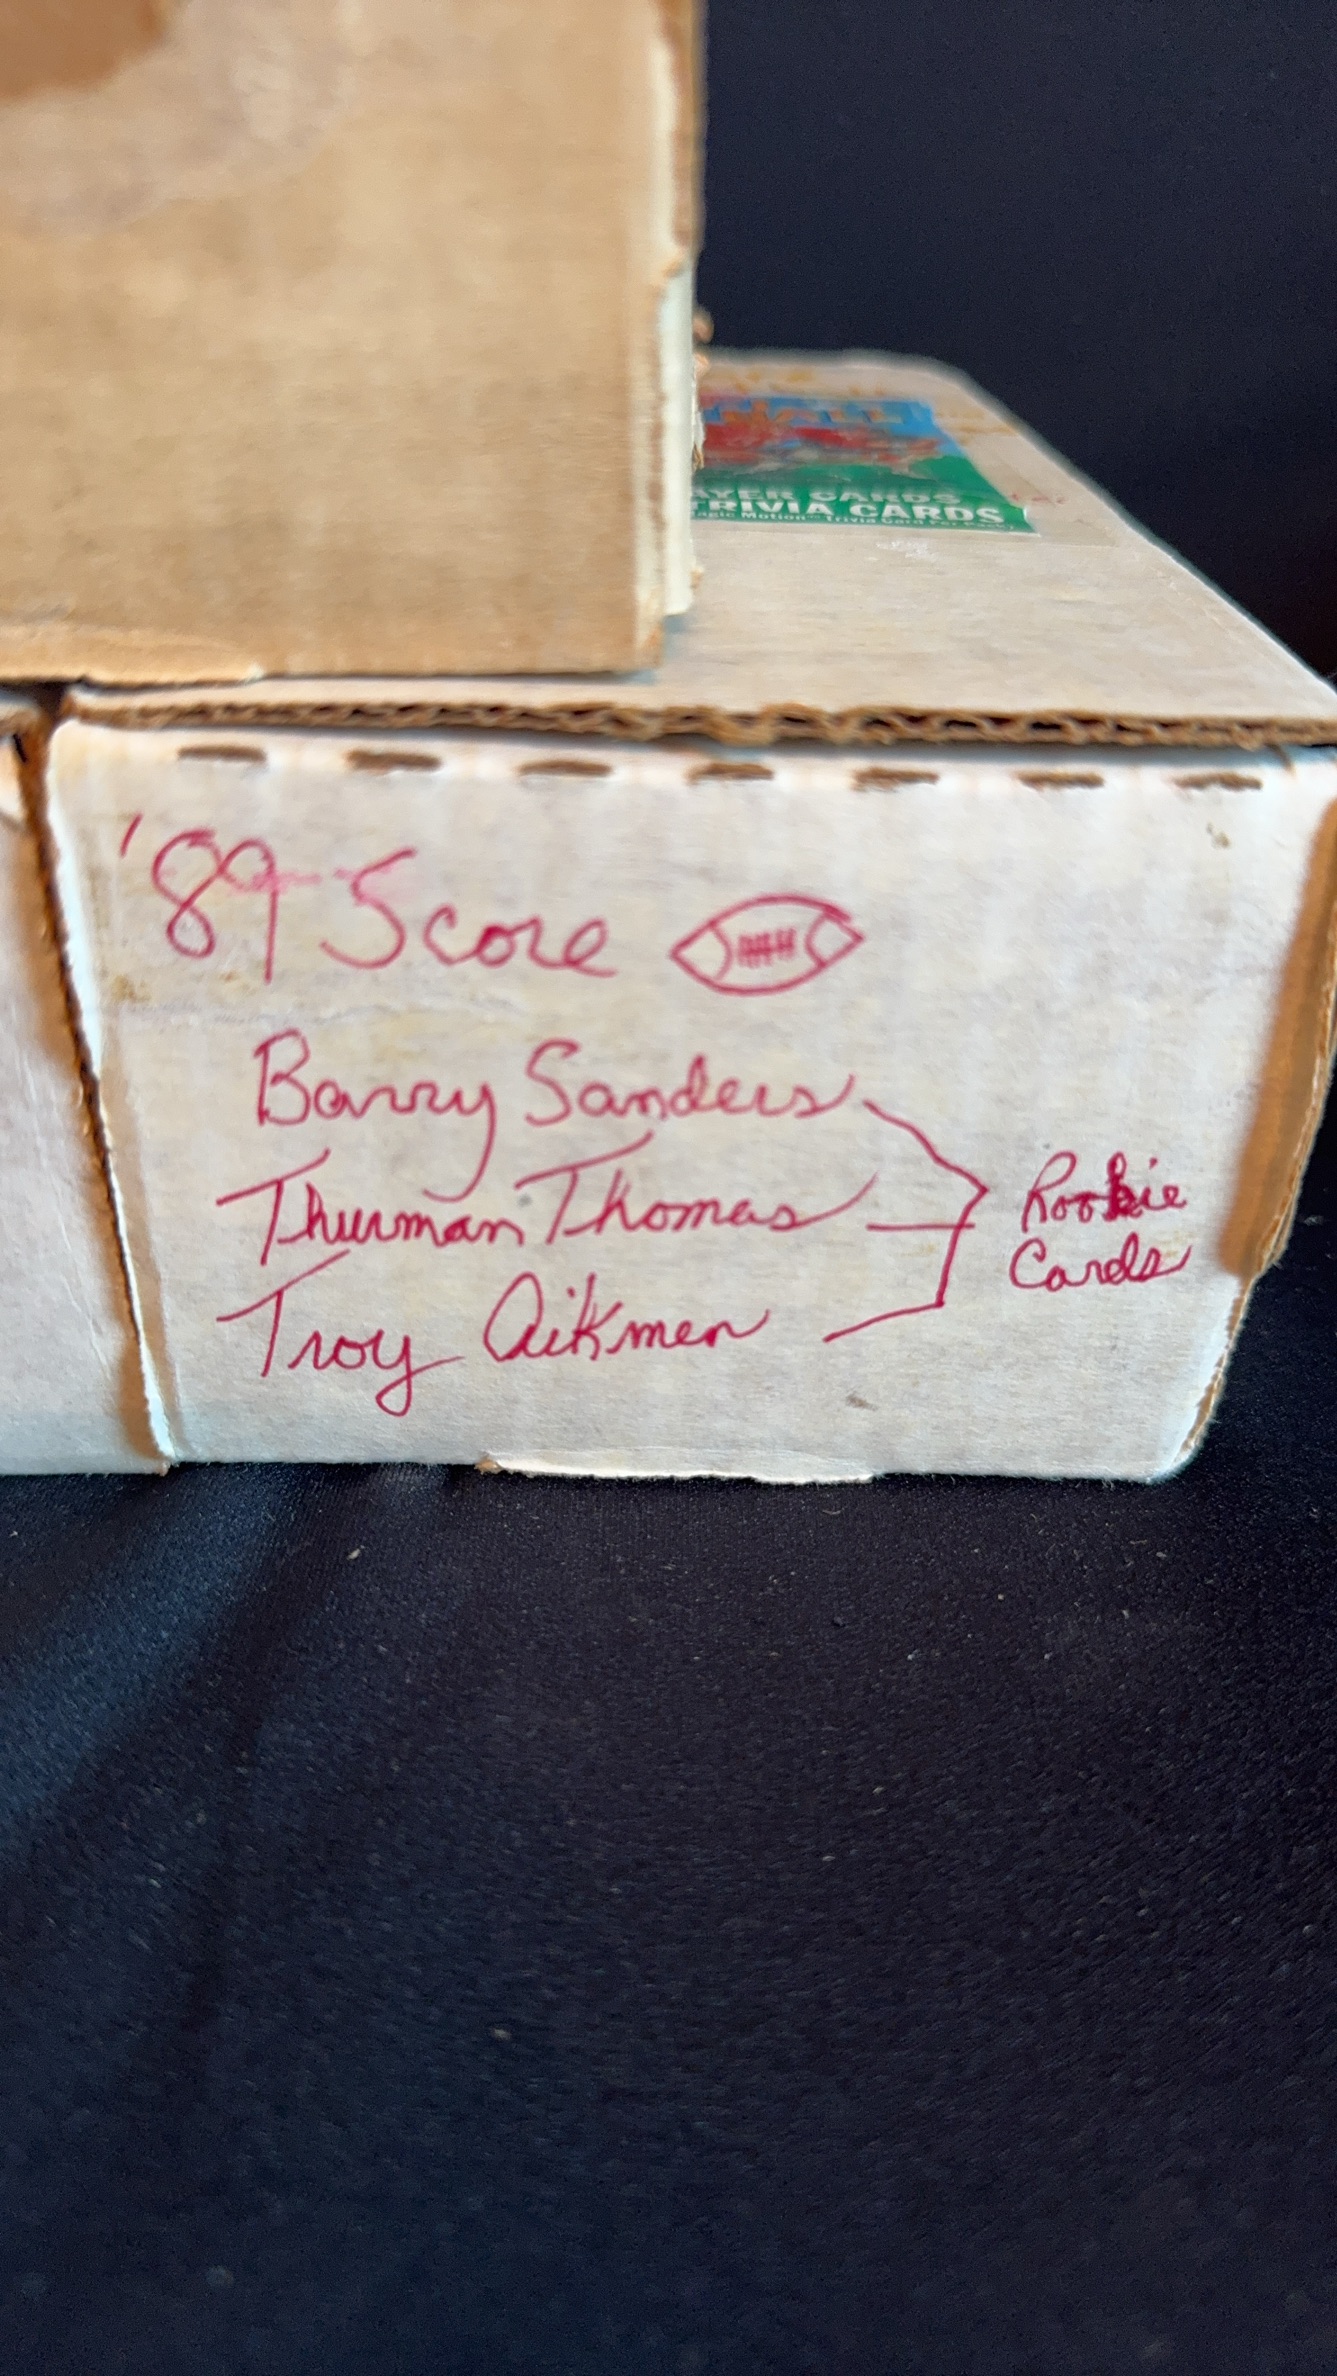 AYER CARDS
TRIVIA CARDS
agic Motion™ Trivia Card Per Pack)
'89 Score
Barry Sanders
Thurman Thomas
Troy Aikmen
Rookie
Cards